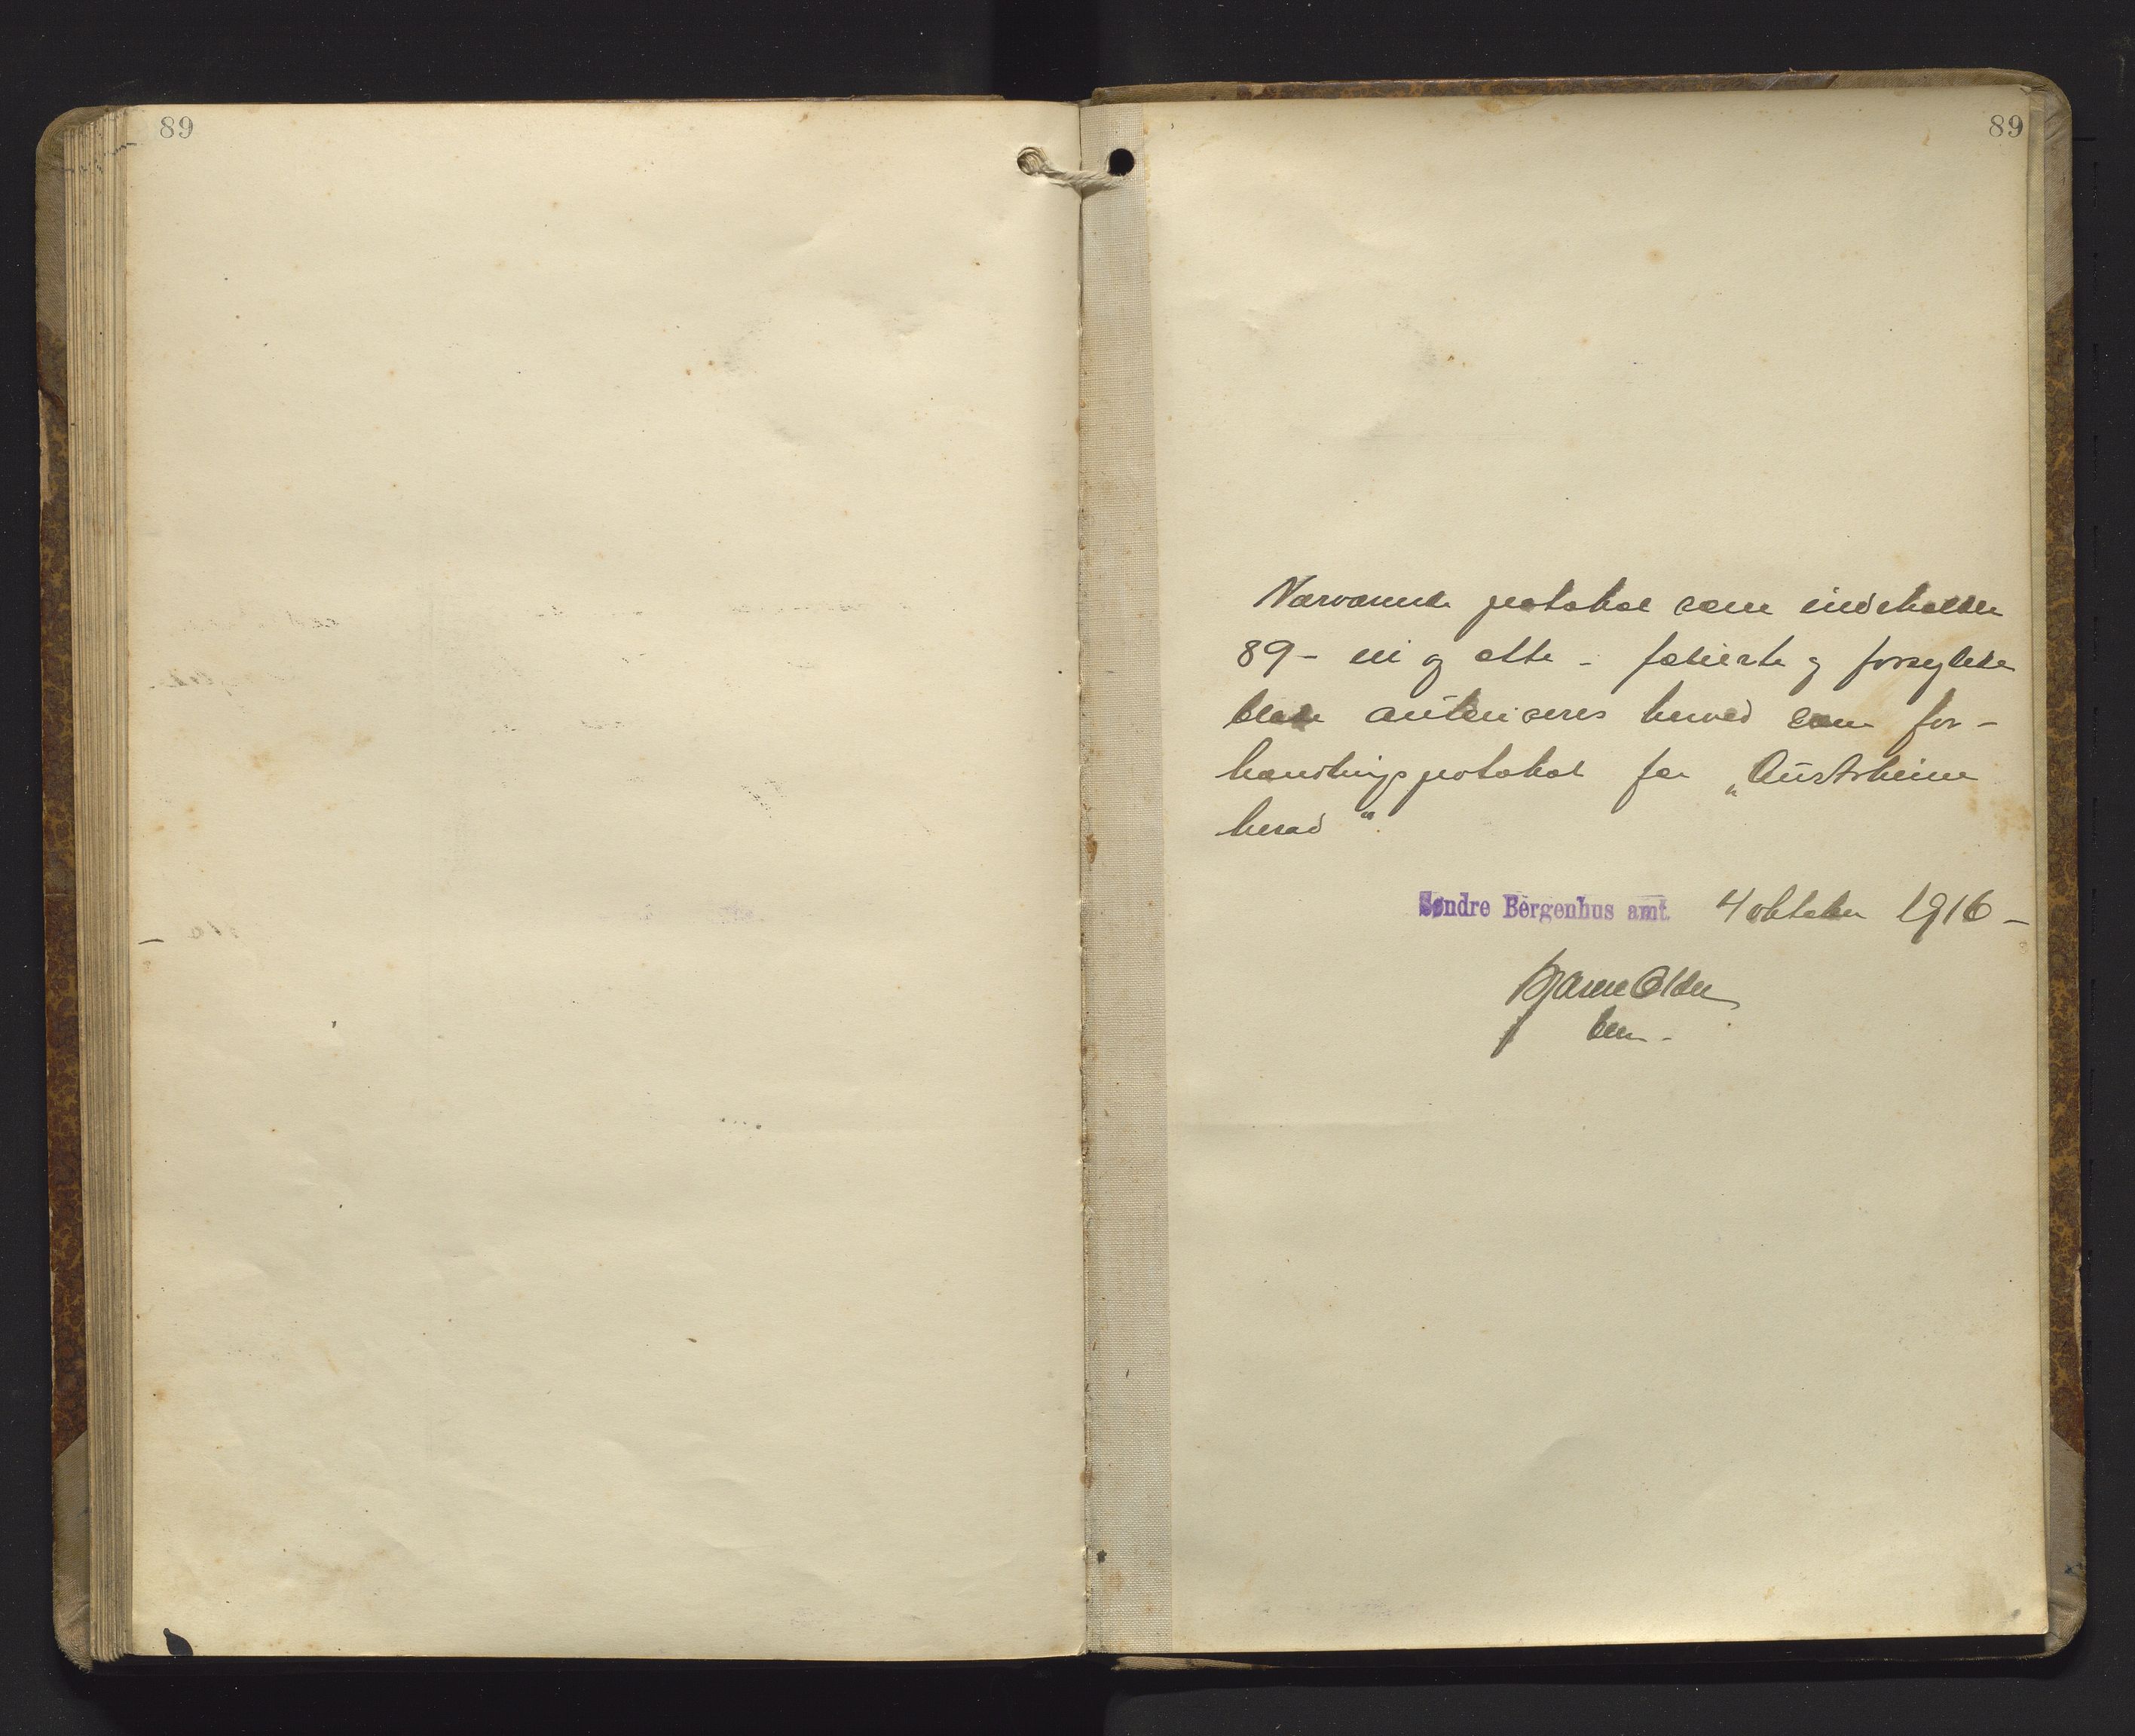 89
89
Nærværende protokol som indeholder
89 - ni og otte - folierte og forseglede
blade autoriseres herved som for-
handlingsprotokol for „Austrheim
herad".
Søndre Bergenhus amt. 4 oktober 1916 -